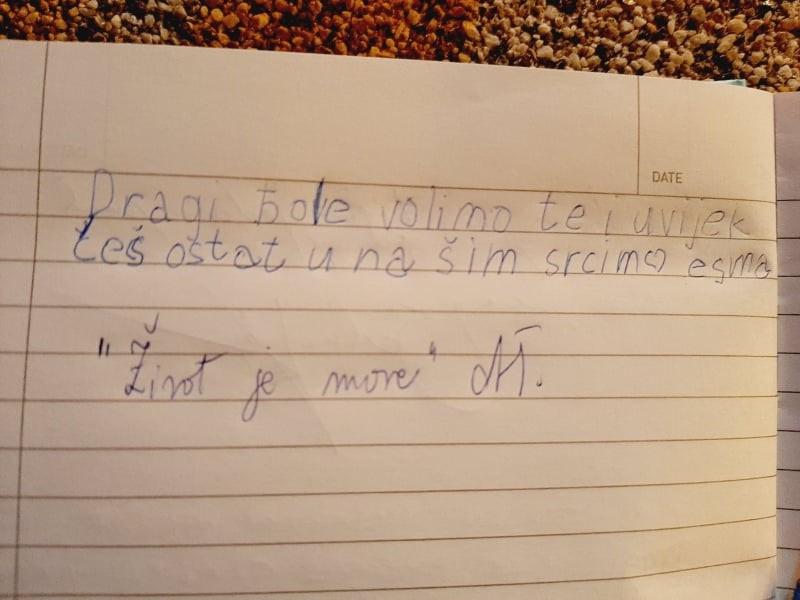 DATE
Dragi Đole volimo te i uvijek
ćeš ostat u na šim srcimo esma
"Život je more" AT.